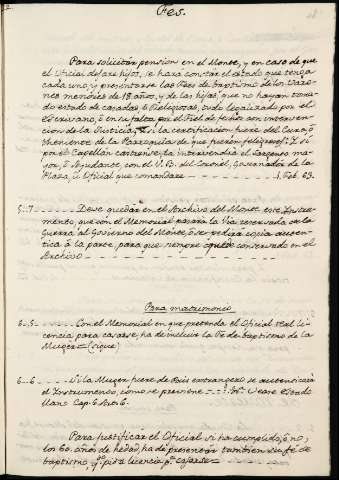 Fes.
Para solicitar pension en el Monte, y en caso de que
el Oficial dexare hijos, se hará constar el estado que tenga
cada uno, y presentarse las Fees de baptismo de los Varo-
nes menores de 18 años, y de las hijas, que no hayan toma-
do estado de casadas o Religiosas, todo legalizado por el
Escrivano, ó en su falta por el Fiel de fechos con interven-
cion de la Justicia; y si la certificacion fuere del Cura, ó
theniente de la Parroquia de que fueren feligreses. Y si
por el Capellan castrense, la intervendrá el Sargento ma-
yor, ó Ayudante, con el V.B. del Coronel, Governador de la
Plaza, ú Oficial que comandare
5..7 Deve quedar en el Archivo del Monte este Instru-
mento, que con el Memorial pasará la Via reservada de la
Guerra al Govierno del Monte, ó se pedirá copia auten-
tica á la parte, para que siempre quede conservado en el
Archivo
Para matrimonio
6..5 Con el Memorial en que pretenda el Oficial Real li-
cencia para casarse, ha de incluir la Fé de baptismo de la
Muger (sigue)
6..6 Si la Muger fuere de Pais extrangero se autenticará
el Instrumento, como se previene Vease Estado
llano Cap. 6
Para justificar el Oficial si ha cumplido, ó no,
los 60. años de hedad, ha de presentar tambien su fé de
baptismo, q.do pida licencia p.a casarse